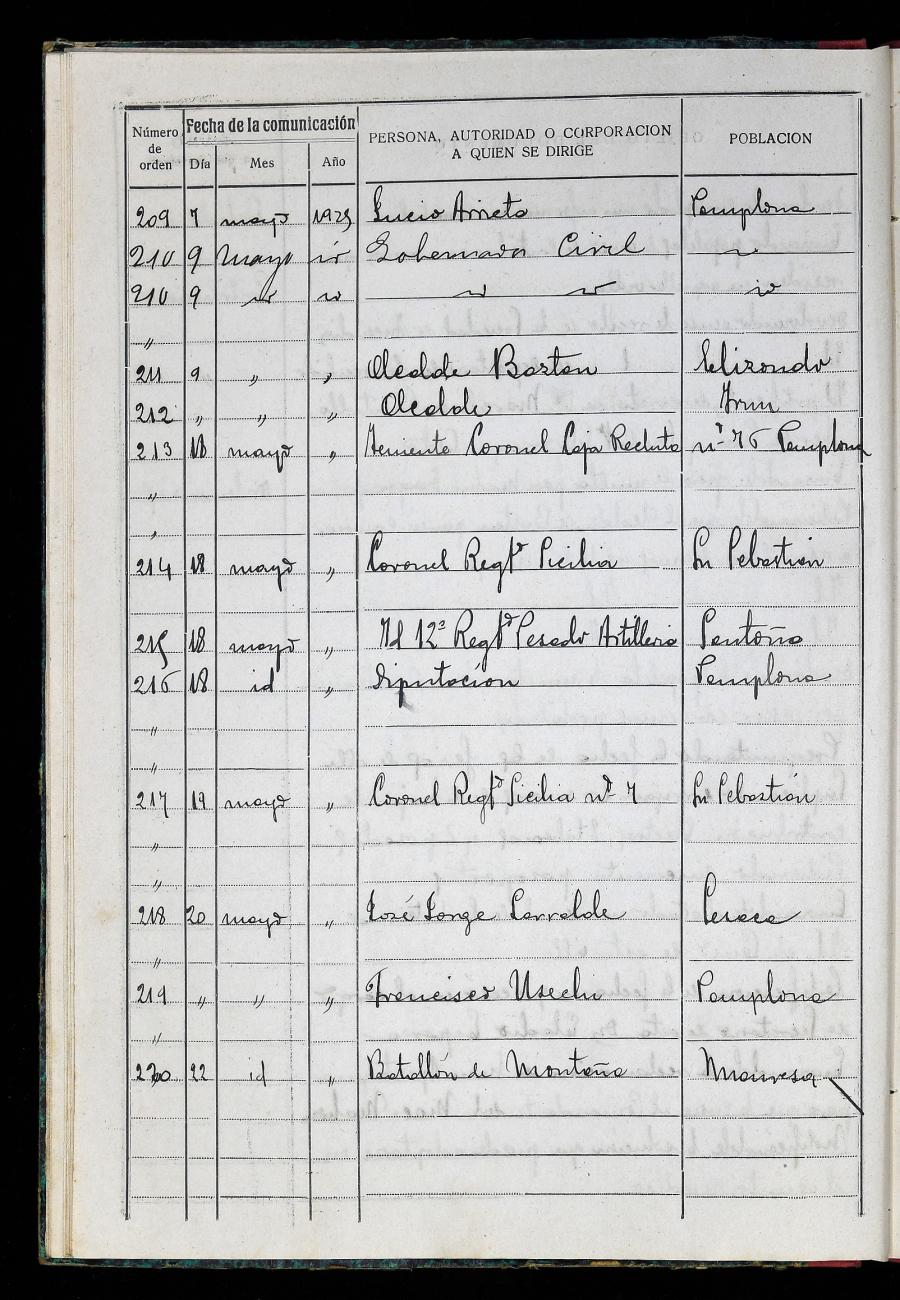 Número de orden Fecha de la comunicación PERSONA, AUTORIDAD O CORPORACION A QUIEN SE DIRIGE POBLACION
Día Mes Año
209 7 mayo 1925 Lucio Arreta Pamplona
210 9 Mayo id Gobernador Civil id
210 9 id id id id id
"
211 9 " " Alcalde Baztan Elizondo
212 " " " Alcalde Irun
213 18 mayo " Teniente Coronel Caja Recluta nº 76 Pamplona
"
"
214 18 mayo " Coronel Regtº Sicilia Sn Sebastián
215 18 mayo " Id 12º Regtº Pesado Artilleria Santoña
216 18 id " Diputación Pamplona
"
"
217 19 mayo " Coronel Regtº Sicilia nº 7 Sn Sebastián
"
"
218 20 mayo " José Jorge Larralde Lesaca
"
219 " " " Francisco Usechi Pamplona
"
220 22 id " Batallón de Montaña Manresa